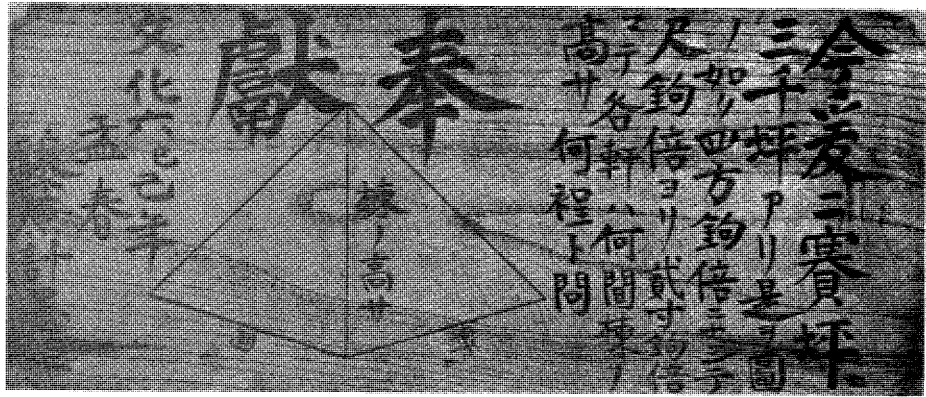 今爰ニ賽坪
三千坪アリ是ヲ圖
ノ如リ四方鉤倍ニシテ
尺鉤倍ヨリ貳寸鉤倍
マテ各軒ハ何間棟ノ
高サ何程ト問
奉獻
棟ノ高サ
文化六己巳年
孟春